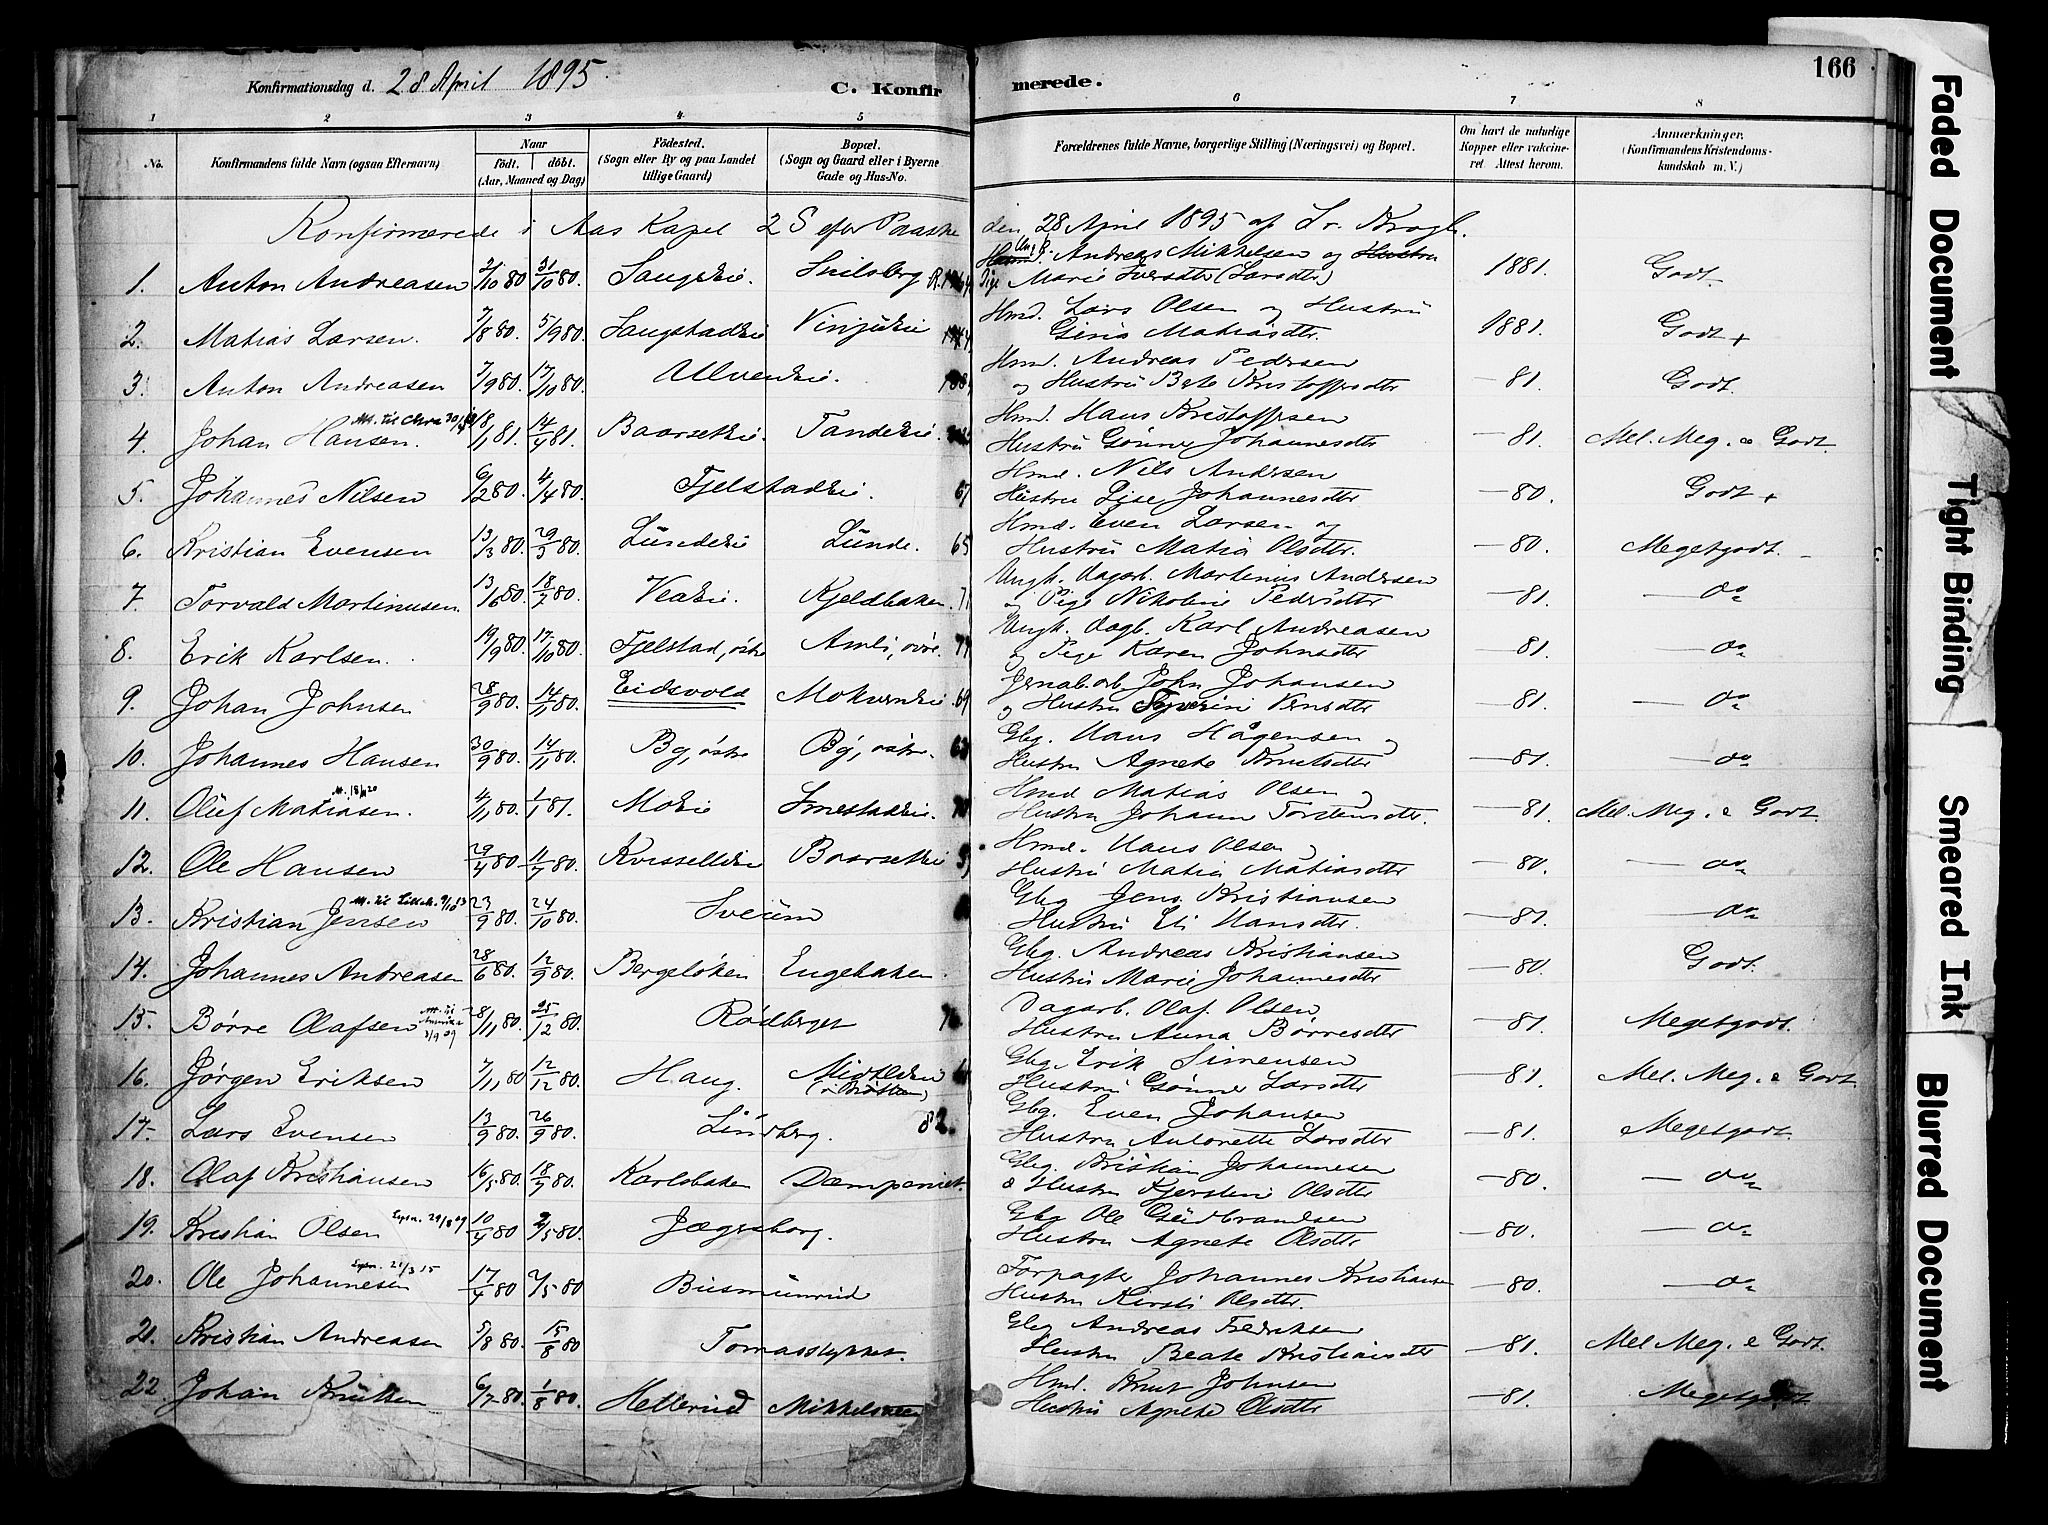 166
Konfirmationsdag d. 28 April 1895.
C. Konfirmerede.
1 2 3 4 5 6 7 8
No.
Konfirmandens fulde Navn (ogsaa Efternavn)
Naar
födt. döbt.
(Aar, Maaned og Dag)
Födested.
(Sogn eller By og paa Landet
tillige Gaard)
Bopæl.
(Sogn og Gaard eller i Byerne
Gade og Hus-No.
Forældrenes fulde Navne, borgerlige Stilling (Næringsvei) og Bopæl.
Om havt de naturlige
Kopper eller vaccine-
ret. Attest herom.
Anmærkninger.
(Konfirmandens Kristendoms-
kundskab m. V.)
Konfirmerede i Aas Kapel 2 S efter Paaske den 28 April 1895 af
1. Anton Andreasen 2/10 80 31/10 80. Andreas Mikkelsen og Hustru
Pige Marie Iversdtr (Larsdtr) 1881. Godt
2. Matias Larsen. 7/8 80 5/9 80. Hmd. Lars Olsen og Hustru
Matiasdtr. 1881. Godt +
3. Anton Andreasen 3/9 80. 17/10 80. Hmd. Andreas Pedersen
og Hustru Kristoffersdtr —81. Godt.
4. Johan Hansen. 18/1 81. 14/4 81. Hmd. Hans Kristoffersen
Hustru Johannesdtr —81. Mel. Meg. & Godt
5. Johannes Nilsen 6/2 80. 4/4 80. Fjelstadeie. 67 Hmd. Nils Andersen
Hustru Lise Johannesdtr —80. Godt +
6. Kristian Evensen 13/3 80. 29/3 80. Lundeeie Lunde. 65 Hmd. Even Larsen og
Hustru Matia Olsdtr. —80. Megetgodt.
7. Torvald Martinusen. 13/6 80 18/7 80. Kjeldbaken. Ungk. Dagarb. Martinus Andersen
og Pige Nikoline Pedersdtr —81. do
8. Erik Karlsen. 19/9 80 17/10 80. Fjelstad, östre Amli, övre. Ungk. Dagb. Karl Andreasen
og Pige Karen Johnsdtr —81. do
9. Johan Johnsen 28/9 80. 14/11 80. Eidsvold 69 Jernab.arb. John Johansen
og Hustru —81. do
10. Johannes Hansen 30/9 80. 14/11 80. By, östre By, östre. Gbg. Hans Hågensen og
Hustru Agnete Knutsdtr —81. do
11. Oluf Matiasen. 4/11 80. 1/1 81. Moeie Smestadeie. Hmd Matias Olsen og
Hustru Johanne Torstensdtr. —81. Mel. Meg. & Godt.
12. Ole Hansen 29/4 80. 11/7 80. Hmd. Hans Olsen og
Hustru Matia Matiasdtr —80. do
13. Kristian Jensen 23/9 80. 24/10 80. Sveum Gbg Jens Kristiansen
Hustru Eli Hansdtr. —81. do
14. Johannes Andreasen 28/6 80. 12/9 80. Bergelöken Engebaken. Gbg. Andreas Kristiansen
Hustru Marie Johannesdtr —80. Godt.
15. Börre Olafsen 28/11 80. 25/12 80. Rödberget Dagarb. Olaf Olsen,
Hustru Anna Börresdtr —81. Megetgodt.
16. Jörgen Eriksen 7/11 80 12/12 80. Haug. Gbg. Erik Simensen
Hustru Larsdtr —81. Mel. Meg. & Godt.
17. Lars Evensen 13/9 80. 26/9 80. Lundberg. 82 Gbg. Even Johansen
Hustru Antonette Larsdtr —81. Megetgodt.
18. Olaf Kristiansen 16/5 80. 18/7 80. Karlsbaken Gbg. Kristian Johannesen
& Hustru Kjersti Olsdtr —80. do
19. Kristian Olsen 10/4 80 2/5 80. Jægersborg. Gbg Ole Gudbrandsen
Hustru Agnete Olsdtr —80. do
20. Ole Johannesen 17/4 80 2/5 80 Forpagter Johannes Kristiansen
Hustru Kirsti Olsdtr. —80. do
21. Kristian Andreasen 5/8 80. 15/8 80 Tomasstykket. Gbg Andreas Fredriksen
Hustru Beate Kristiansdtr —81. Mel Meg. & Godt.
22. Johan Knutsen 6/7 80. 1/8 80. Hellerud Hmd. Knut Johnsen
Hustru Agnete Olsdtr —81. Megetgodt
Faded Document
Tight Binding
Smeared Ink
Blurred Document